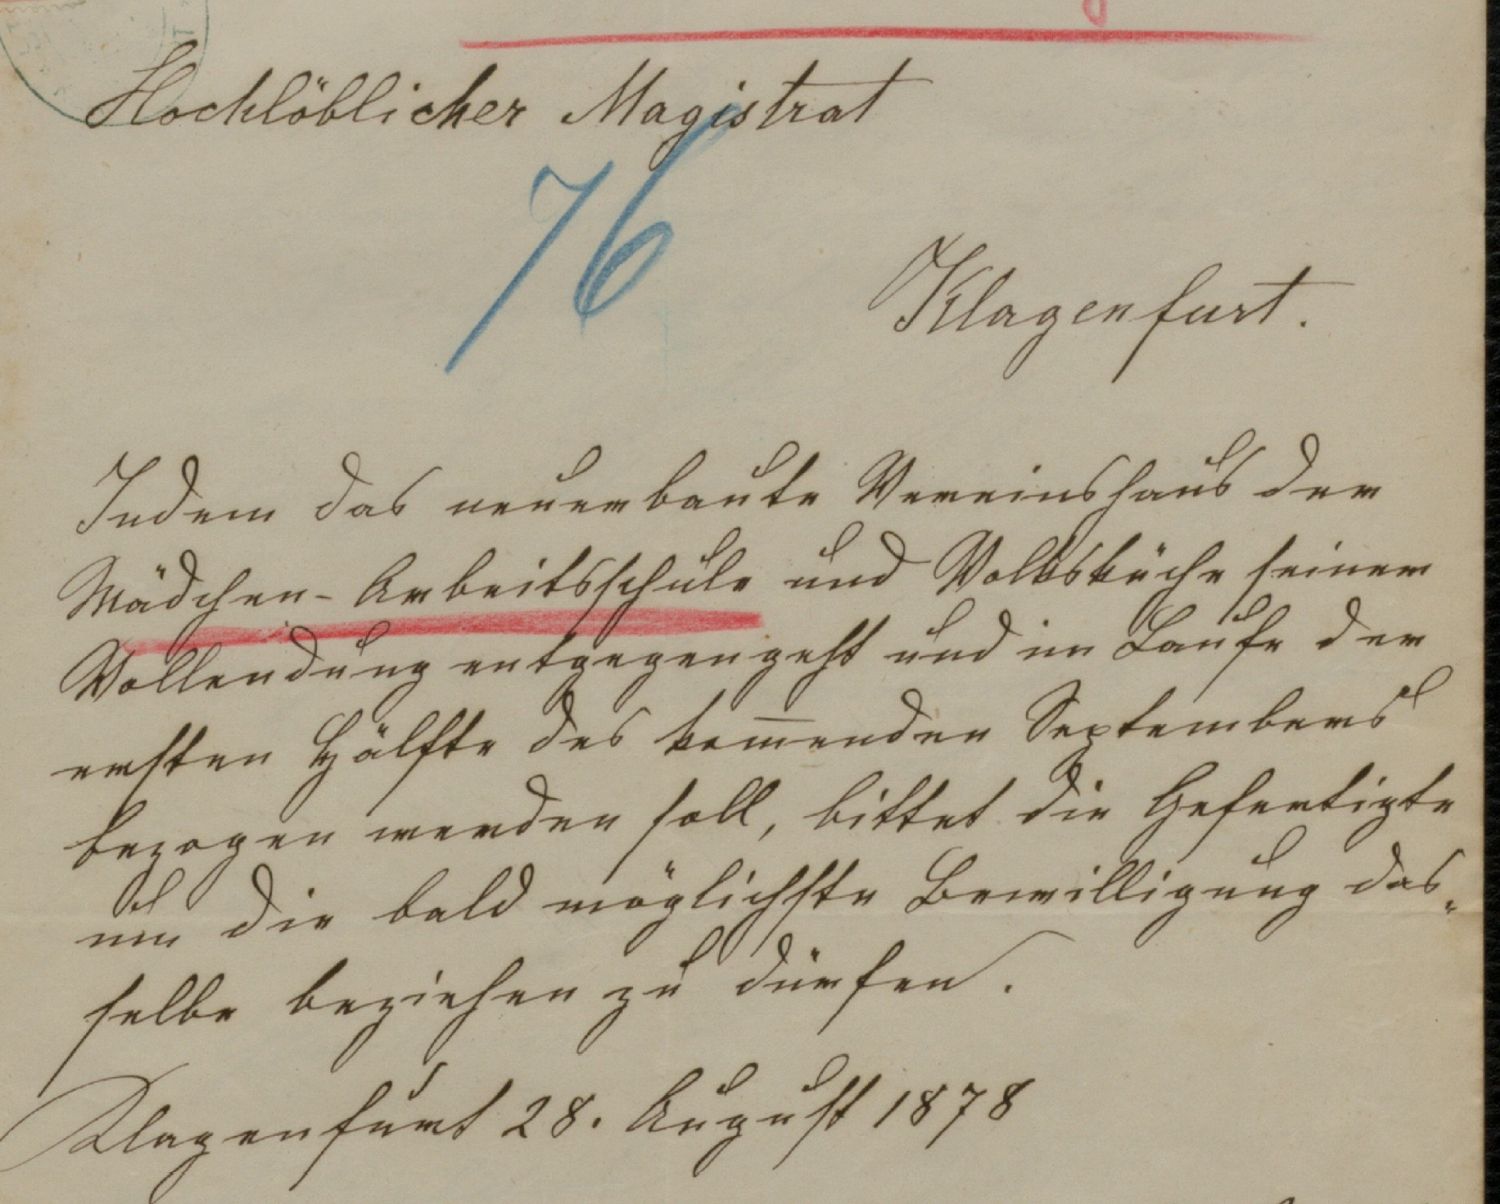 Hochlöblicher Magistrat
76
Klagenfurt.
Indem das neuerbaute Vereinshaus der
Mädchen-Arbeitsschule und Volksküche seiner
Vollendung entgegengeht und im Laufe der
ersten Hälfte des kom̅enden Septembers
bezogen werden soll, bittet die Gefertigte
um die bald möglichste Bewilligung das„
selbe beziehen zu dürfen.
Klagenfurt 28. August 1878